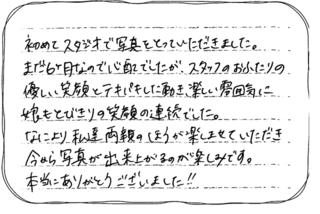 初めてスタジオで写真をとっていただきました。
まだ6ヶ月なので心配でしたが、スタッフのおふたりの
優しい笑顔とテキパキした動き、楽しい雰囲気に
娘もとびきりの笑顔の連続でした。
なにより私達両親のほうが楽しませていただき
今から写真が出来上がるのが楽しみです。
本当にありがとうございました!!